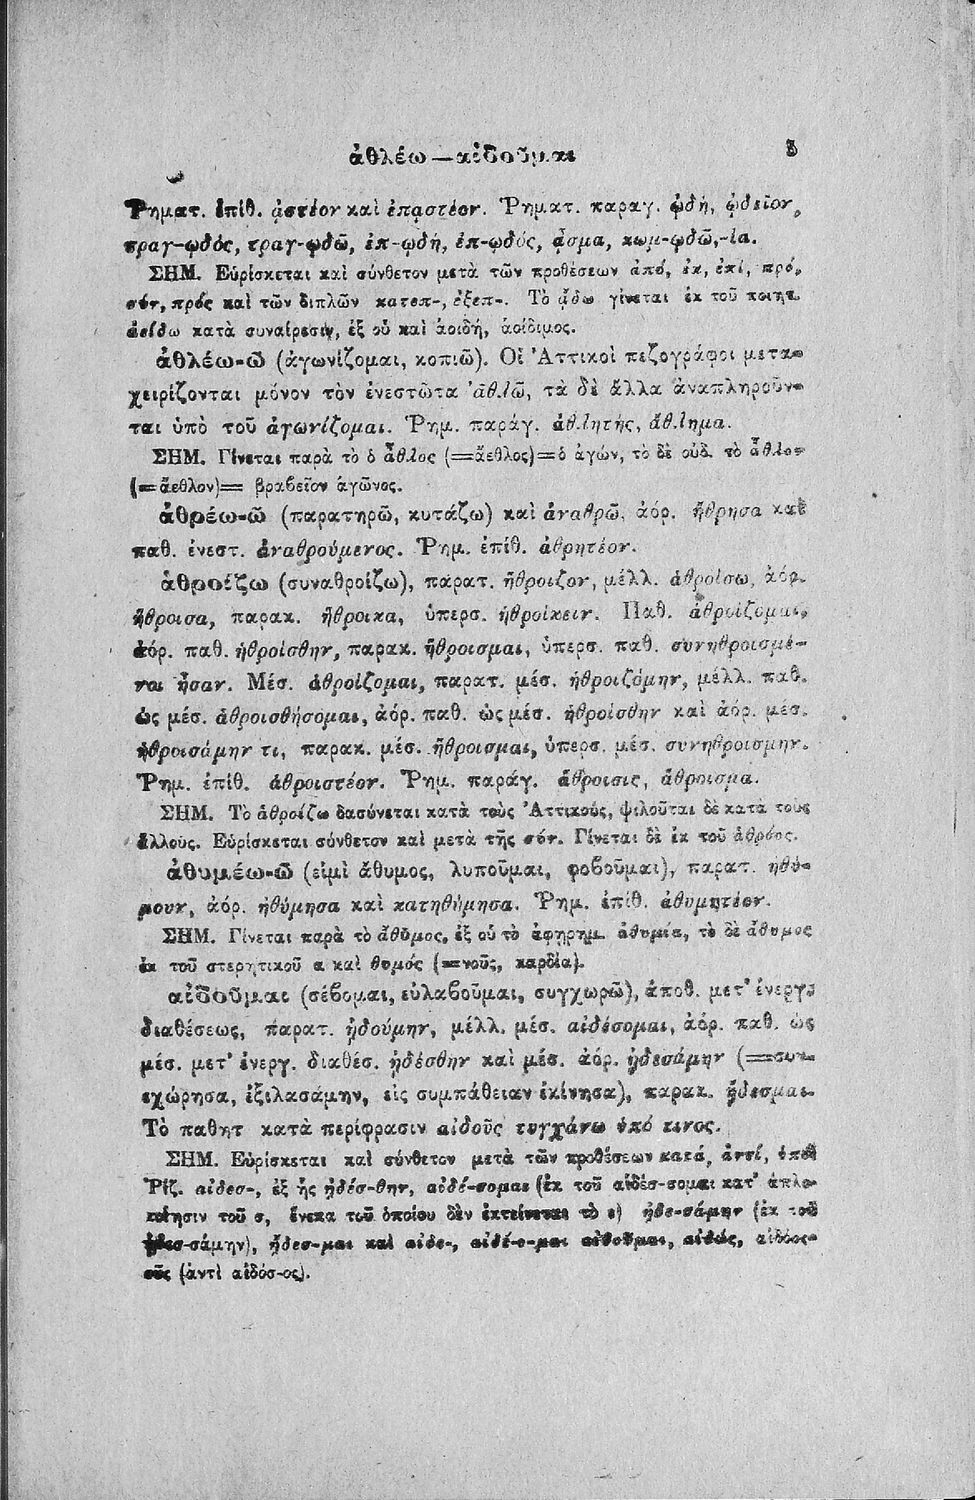 ἀθλέω — αἰδοῦμαι 3
Ῥηματ. ἐπίθ. ᾀστέον καὶ ἐπᾳστέον. Ῥηματ. παραγ. ᾠδή, ᾠδεῖον,
τραγ-ῳδός, τραγ-ῳδῶ, ἐπ-ῳδή, ἐπ-ῳδός, ᾆσμα, κωμ-ῳδῶ,-ία.
ΣΗΜ. Εὑρίσκεται καὶ σύνθετον μετὰ τῶν προθέσεων ἀπό, ἐκ, ἐπί, πρό,
σύν, πρός καὶ τῶν διπλῶν κατεπ-, ἐξεπ-. Τὸ ᾄδω γίνεται ἐκ τοῦ ποιητ.
ἀείδω κατὰ συναίρεσιν, ἐξ οὗ καὶ ἀοιδή, ἀοίδιμος.
ἀθλέω-ῶ (ἀγωνίζομαι, κοπιῶ). Οἱ Ἀττικοὶ πεζογράφοι μετα-
χειρίζονται μόνον τὸν ἐνεστῶτα ἀθλῶ, τὰ δὲ ἄλλα ἀναπληροῦν-
ται ὑπὸ τοῦ ἀγωνίζομαι. Ῥημ. παράγ. ἀθλητής, ἄθλημα.
ΣΗΜ. Γίνεται παρὰ τὸ ὁ ἆθλος (=ἄεθλος)=ὁ ἀγών, τὸ δὲ οὐδ. τὸ ἆθλον
(=ἄεθλον)= βραβεῖον ἀγῶνος.
ἀθρέω-ῶ (παρατηρῶ, κυτάζω) καὶ ἀναθρῶ, ἀόρ. ἤθρησα καὶ
παθ. ἐνεστ. ἀναθρούμενος. Ῥημ. ἐπίθ. ἀθρητέον.
ἁθροίζω (συναθροίζω), παρατ. ἤθροιζον, μέλλ. ἀθροίσω, ἀόρ.
ἤθροισα, παρακ. ἤθροικα, ὑπερσ. ἠθροίκειν. Παθ. ἀθροίζομαι,
ἀόρ. παθ. ἠθροίσθην, παρακ. ἤθροισμαι, ὑπερσ. παθ. συνηθροισμέ-
νοι ἦσαν. Μέσ. ἀθροίζομαι, παρατ. μέσ. ἠθροιζόμην, μέλλ. παθ.
ὡς μέσ. ἀθροισθήσομαι, ἀόρ. παθ. ὡς μέσ. ἠθροίσθην καὶ ἀόρ. μέσ.
ἠθροισάμην τι, παρακ. μέσ. ἤθροισμαι, ὑπερσ. μέσ. συνηθροίσμην.
Ῥημ. ἐπίθ. ἀθροιστέον. Ῥημ. παράγ. ἄθροισις, ἄθροισμα.
ΣΗΜ. Τὸ ἁθροίζω δασύνεται κατὰ τοὺς Ἀττικούς, ψιλοῦται δὲ κατὰ τοὺς
ἄλλους. Εὑρίσκεται σύνθετον καὶ μετὰ τῆς σύν. Γίνεται δὲ ἐκ τοῦ ἀθρόος.
ἀθυμέω-ῶ (εἰμὶ ἄθυμος, λυποῦμαι, φοβοῦμαι), παρατ. ἠθύ-
μουν, ἀόρ. ἠθύμησα καὶ κατηθύμησα. Ῥημ. ἐπίθ. ἀθυμητέον.
ΣΗΜ. Γίνεται παρὰ τὸ ἄθυμος, ἐξ οὗ τὸ ἀφηρημ. ἀθυμία, τὸ δὲ ἄθυμος
ἐκ τοῦ στερητικοῦ α καὶ θυμός (=νοῦς, καρδία).
αἰδοῦμαι (σέβομαι, εὐλαβοῦμαι, συγχωρῶ), ἀποθ. μετ' ἐνεργ.
διαθέσεως, παρατ. ᾐδούμην, μέλλ. μέσ. αἰδέσομαι, ἀόρ. παθ. ὡς
μέσ. μετ' ἐνεργ. διαθέσ. ᾐδέσθην καὶ μέσ. ἀόρ. ᾐδεσάμην (=συν-
εχώρησα, ἐξιλασάμην, εἰς συμπάθειαν ἐκίνησα), παρακ. ᾔδεσμαι.
Τὸ παθητ κατὰ περίφρασιν αἰδοῦς τυγχάνω ὑπό τινος.
ΣΗΜ. Εὑρίσκεται καὶ σύνθετον μετὰ τῶν προθέσεων κατά, ἀντί, ὑπό
Ῥίζ. αἰδεσ-, ἐξ ἧς ᾐδέσ-θην, αἰδέ-σομαι (ἐκ τοῦ αἰδέσ-σομαι κατ' ἁπλο-
ποίησιν τοῦ σ, ἕνεκα τοῦ ὁποίου δὲν ἐκτείνεται τὸ ε) ᾐδε-σάμην (ἐκ τοῦ
ᾐδεσ-σάμην), ᾔδεσ-μαι καὶ αἰδε-, αἰδέ-ο-μαι αἰδοῦμαι, αἰδώς, αἰδόος-
οῦς (ἀντὶ αἰδόσ-ος).